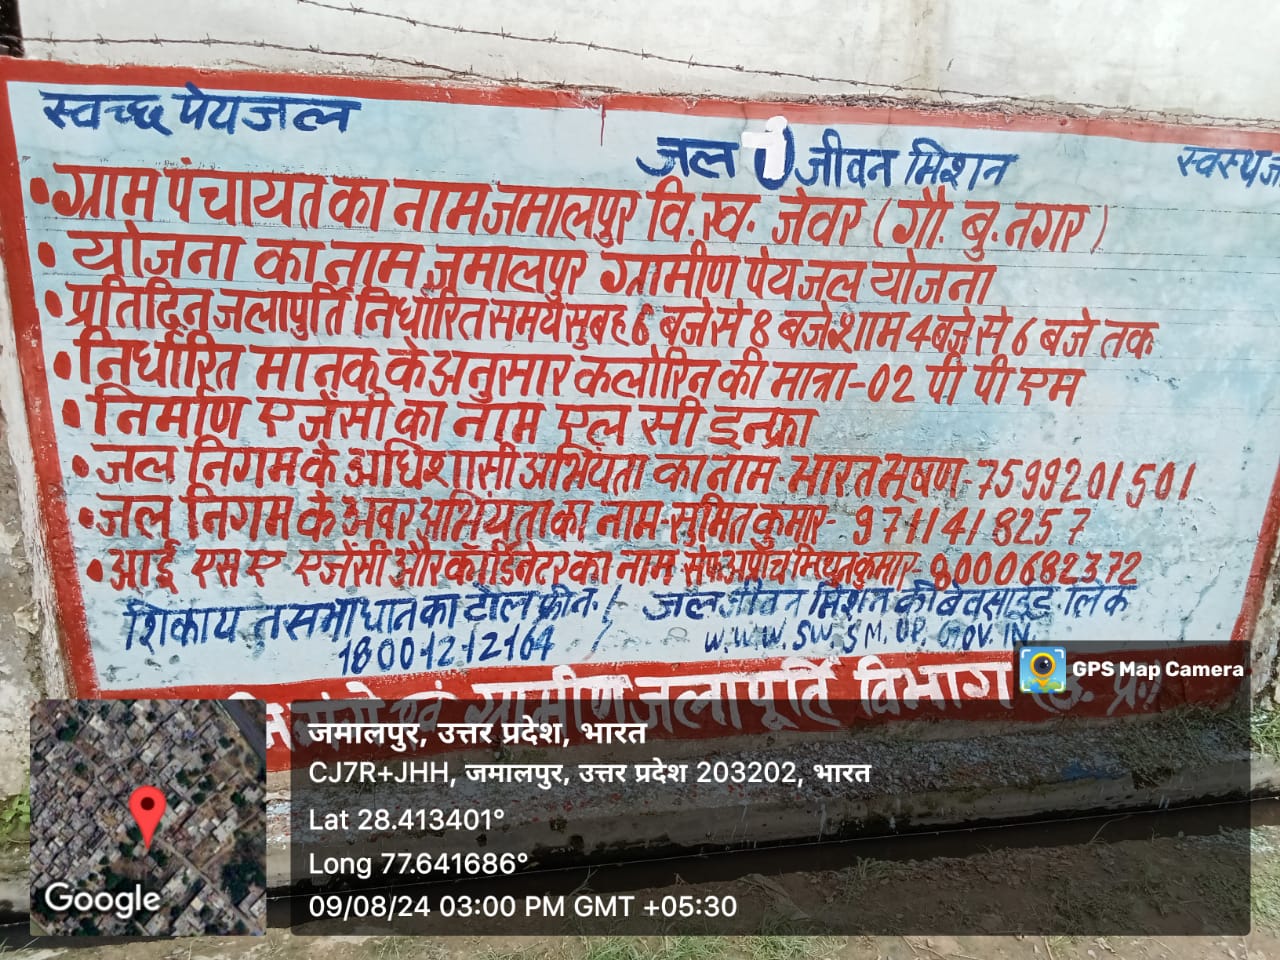 स्वच्छ पेयजल
जल जीवन मिशन
स्वस्थ ज
• ग्राम पंचायत का नाम जमालपुर वि.ख. जेवर (गौ. बु. नगर)
• योजना का नाम जमालपुर ग्रामीण पेयजल योजना
• प्रतिदिन जलापुर्ति निर्धारित समय सुबह 6 बजे से 8 बजे शाम 4 बजे से 6 बजे तक
• निर्धारित मानक के अनुसार क्लोरिन की मात्रा-02 पी पी एम
• निर्माण एजेंसी का नाम एल सी इन्फ्रा
• जल निगम के अधिशासी अभियंता का नाम-भारत भूषण-7599201501
• जल निगम के अवर अभियंता का नाम-सुमित कुमार-9711418257
• आई एस ए एजेंसी और कॉर्डिनेटर का नाम कुमार-8000682372
शिकायत समाधान का टोल फ्री न.
18001212164
जल जीवन मिशन की बेवसाइड. लिंक
W.W.W.SW.SM.UP.GOV.IN
एवं ग्रामीण जलापूर्ति विभाग उ. प्र.
GPS Map Camera
जमालपुर, उत्तर प्रदेश, भारत
CJ7R+JHH, जमालपुर, उत्तर प्रदेश 203202, भारत
Lat 28.413401°
Long 77.641686°
09/08/24 03:00 PM GMT +05:30
Google